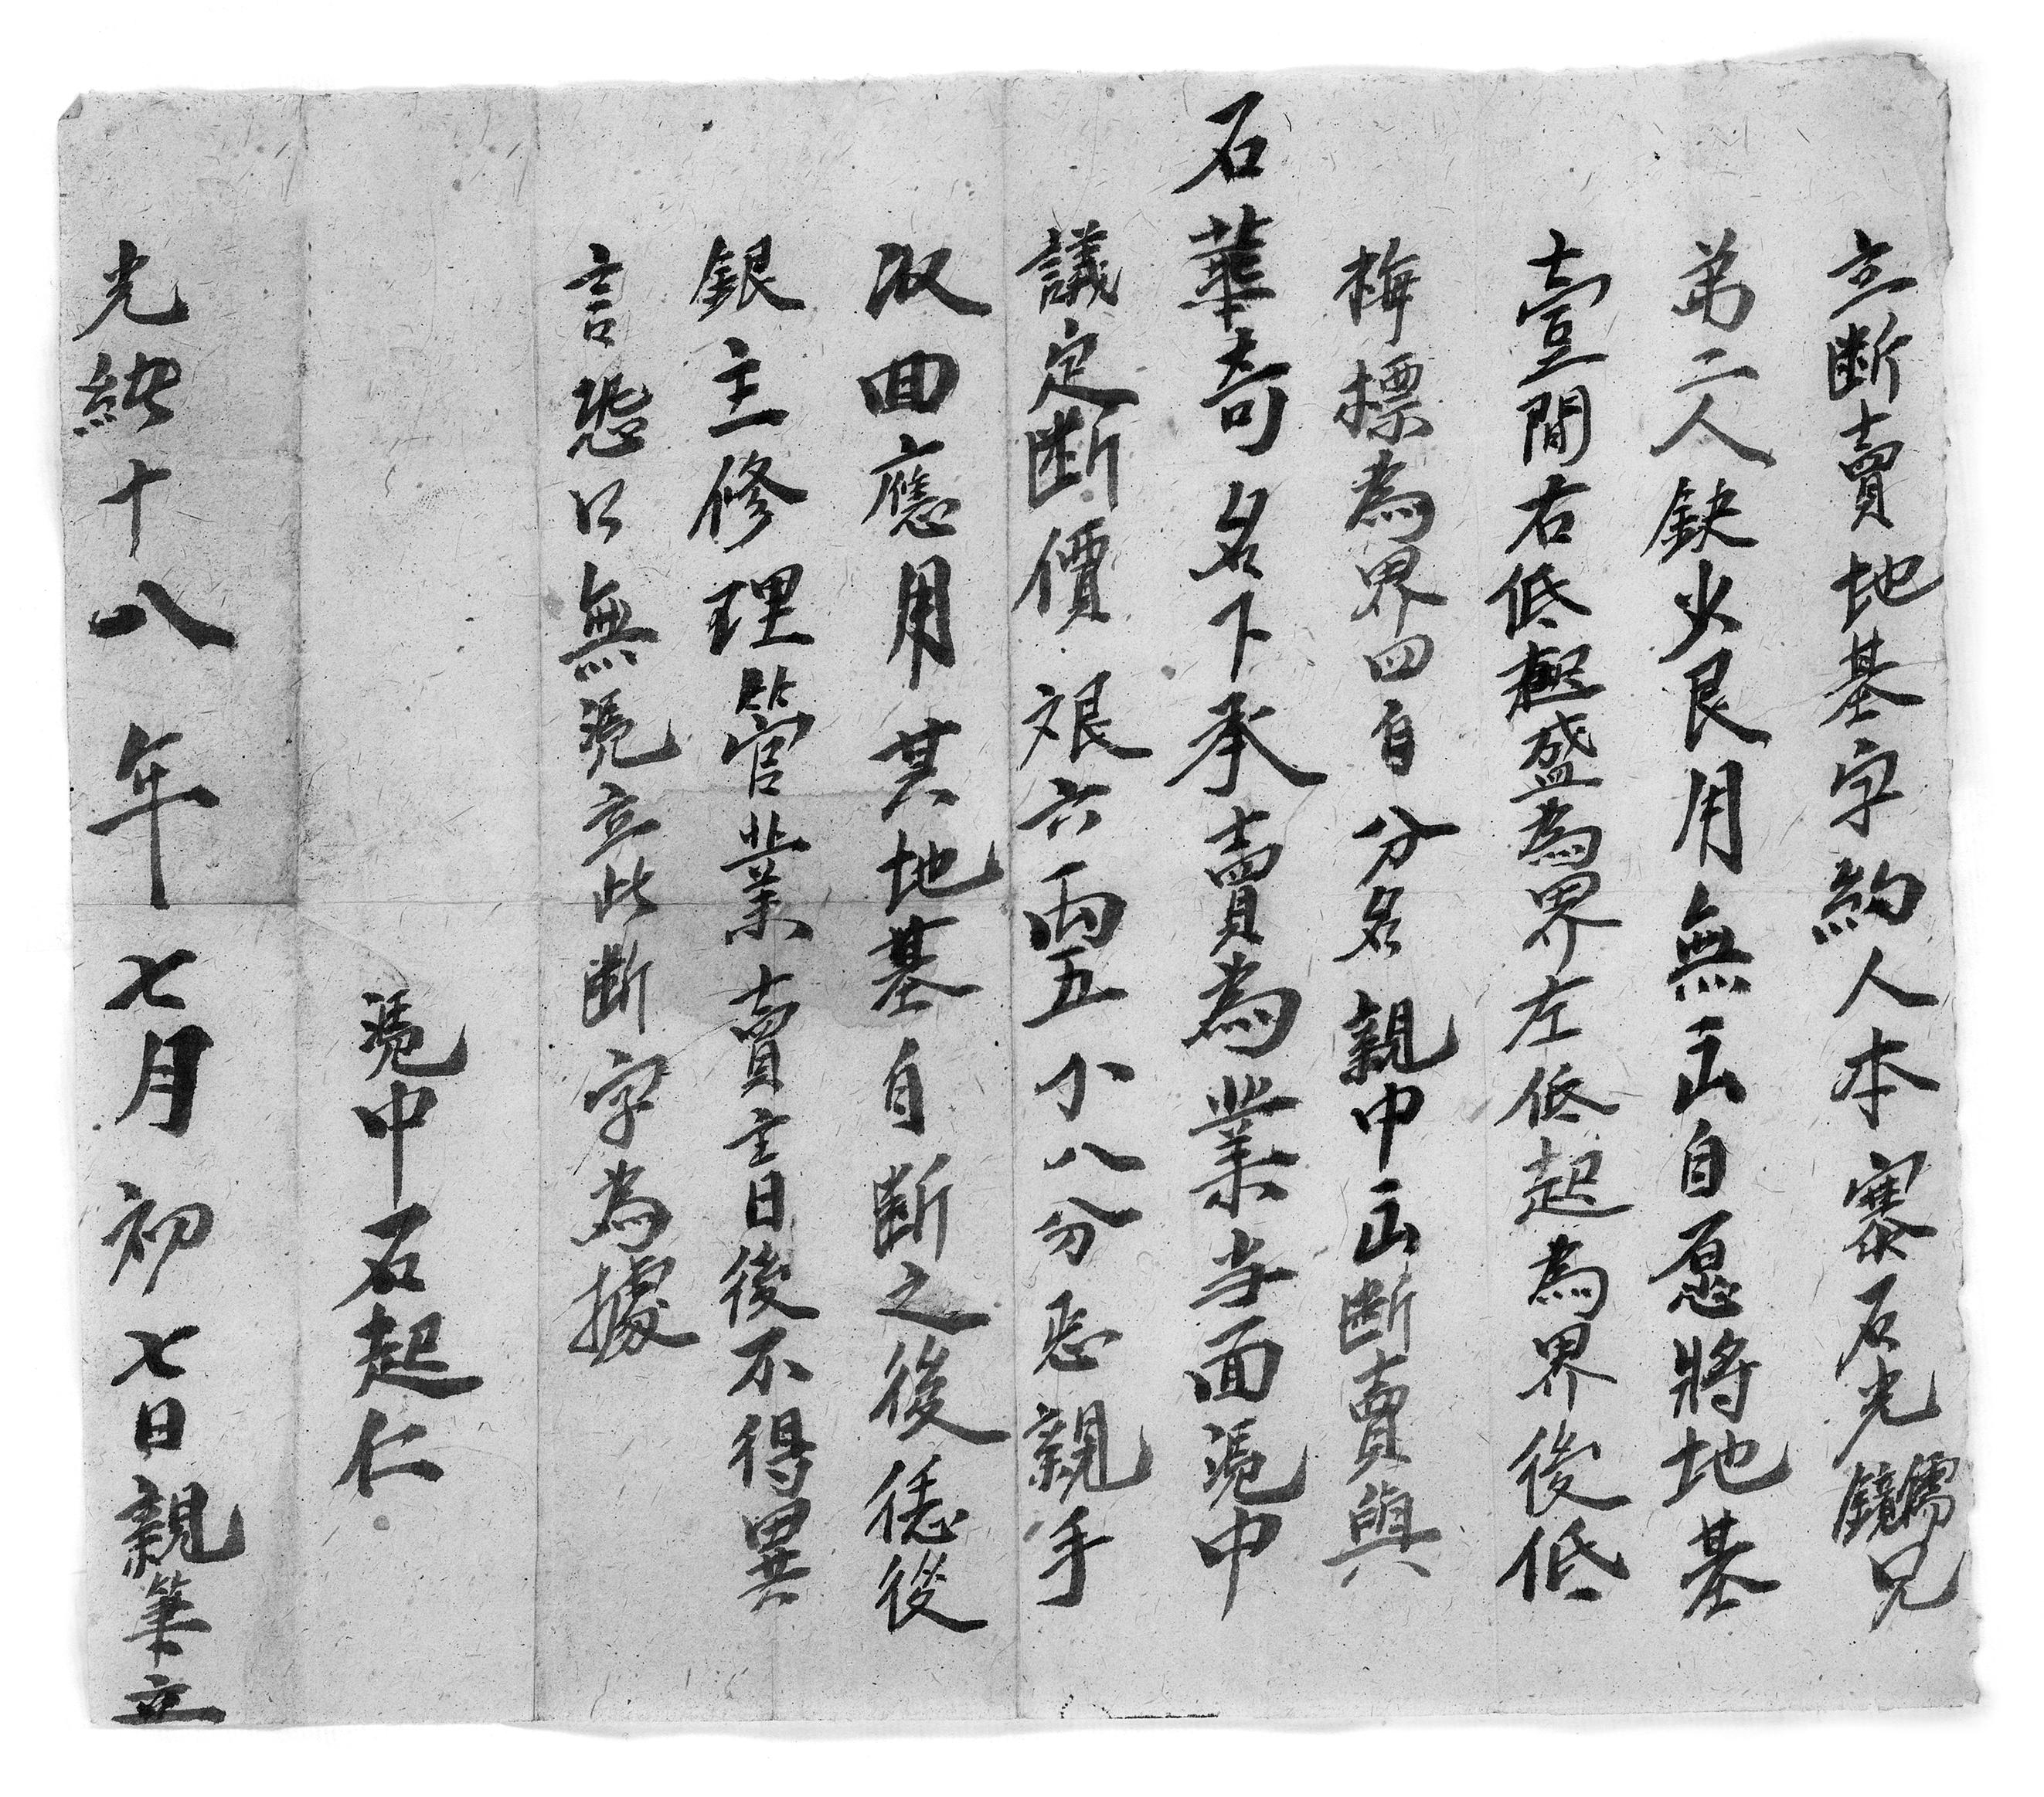 立断賣地基字約人本寨石光儒鏡兄
弟二人缺少艮用無䢖自愿將地基
壹間右低起盛為界左低起為界後低
梅標為界四自分名親中䢖断賣與
石華奇名下承賣為業当面凴中
議定断價艰六両五小八分恁親手
収回應用其地基自断之後恁後
銀主修理管業賣主日後不得異
言恐口無凴立此断字為據
凴中石起仁
光緒十八年七月初七日親筆立